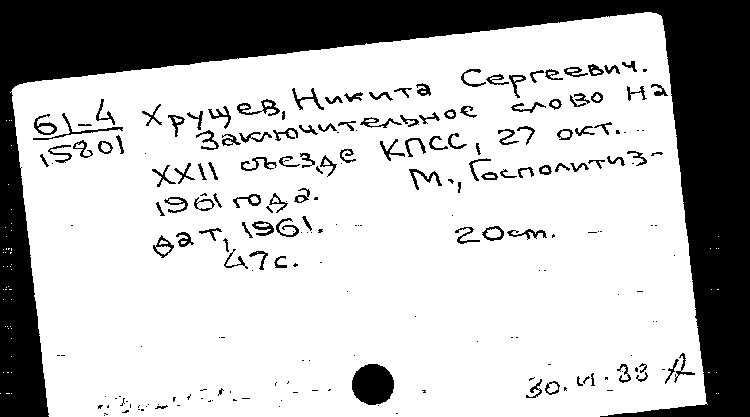 61-4 Хрущев, Никита Сергеевич.
15801 Заключительное слово на
XXII съезде КПСС, 27 окт.
1961 года. М., Госполитиз-
дат, 1961.
47с. 20cm.